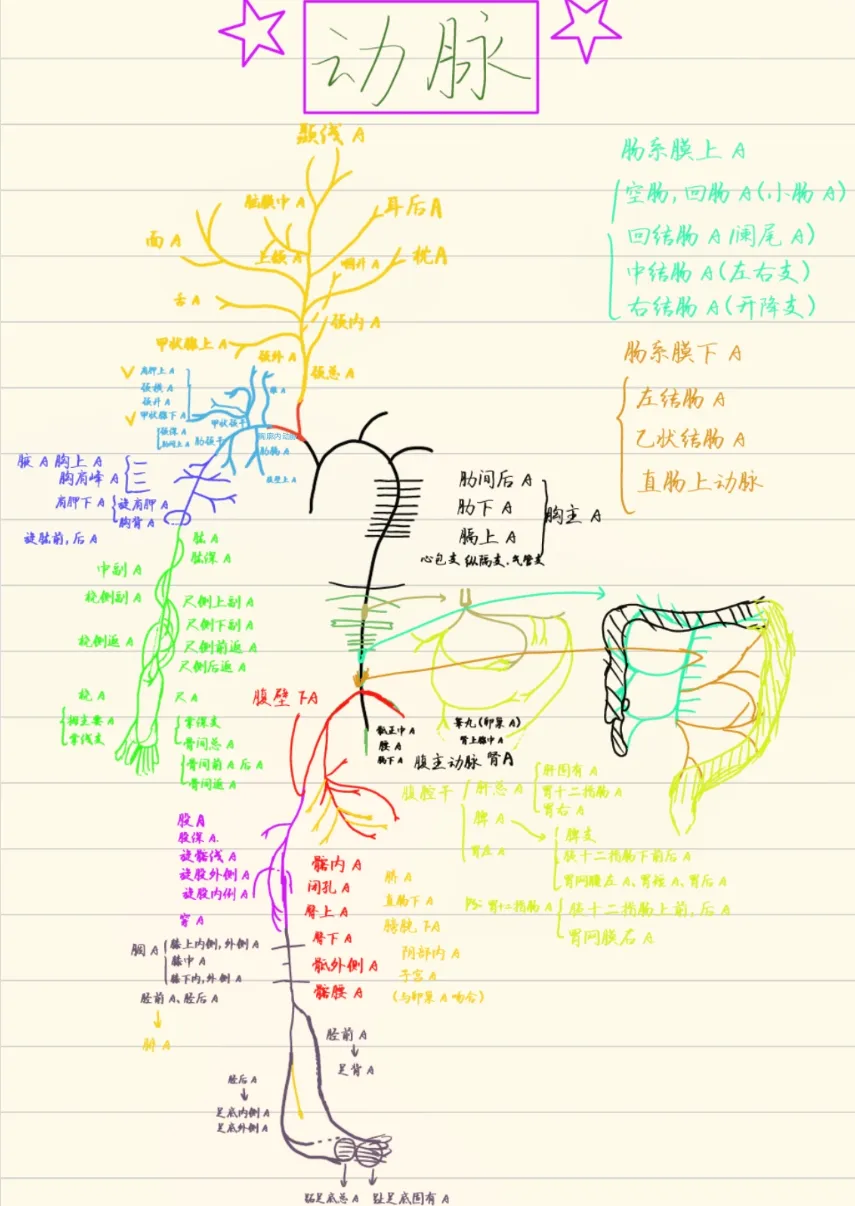 动脉
颞浅 A
脑膜中 A
耳后 A
面 A
上颌 A
咽升 A
枕 A
舌 A
颈内 A
甲状腺上 A
颈外 A
颈总 A
肩胛上 A
颈横 A
颈升 A
甲状腺下 A
甲状颈干
颈深 A
肋间上 A
肋颈干
胸廓内动脉
腋 A 胸上 A
胸肩峰 A
肩胛下 A
旋肩胛 A
胸背 A
旋肱前,后 A
肱 A
肱深 A
中副 A
桡侧副 A
尺侧上副 A
尺侧下副 A
桡侧返 A
尺侧前返 A
尺侧后返 A
桡 A
尺 A
拇主要 A
掌浅支
掌深支
骨间总 A
骨间前 A 后 A
骨间返 A
肠系膜上 A
空肠,回肠 A(小肠 A)
回结肠 A(阑尾 A)
中结肠 A(左右支)
右结肠 A(升降支)
肠系膜下 A
左结肠 A
乙状结肠 A
直肠上动脉
肋间后 A
肋下 A
膈上 A
心包支 纵隔支、气管支
胸主 A
腹壁下A
骶正中 A
腰 A
膈下 A
睾丸(卵巢 A)
肾上腺中 A
腹主动脉 肾A
腹腔干
肝总 A
肝固有 A
胃十二指肠 A
胃右 A
脾 A
胃左 A
脾支
胰十二指肠下前后 A
胃网膜左 A、胃短 A、胃后 A
Ps: 胃十二指肠 A
胰十二指肠上前,后 A
胃网膜右 A
股 A
股深 A.
旋髂浅 A
旋股外侧 A
旋股内侧 A
腘 A
膝上内侧,外侧 A
膝中 A
膝下内,外侧 A
胫前 A、胫后 A
腓 A
髂内 A
闭孔 A
臀上 A
臀下 A
骶外侧 A
髂腰 A
脐 A
直肠下 A
膀胱下A
阴部内 A
子宫 A
(与卵巢 A 吻合)
胫前 A
足背 A
胫后 A
足底内侧 A
足底外侧 A
趾足底总 A
趾足底固有 A